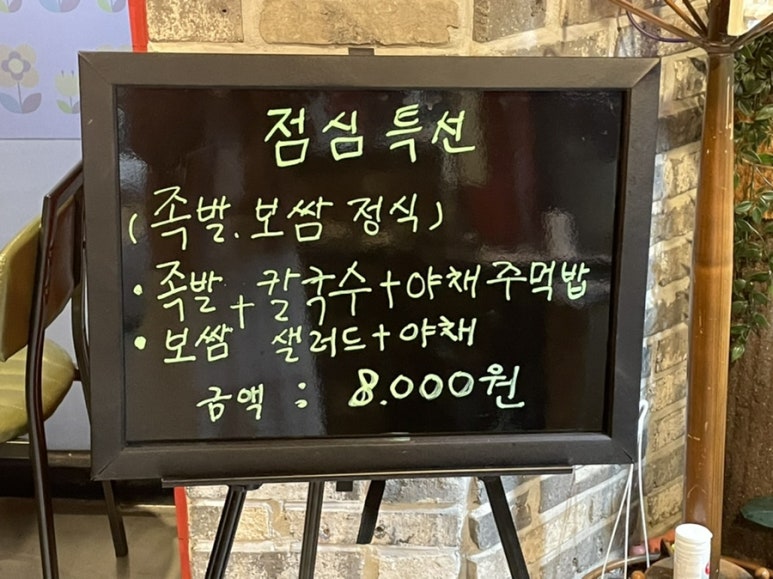 점심 특선
(족발.보쌈 정식)
• 족발 + 칼국수 + 야채 주먹밥
• 보쌈 샐러드 + 야채
금액 : 8.000원